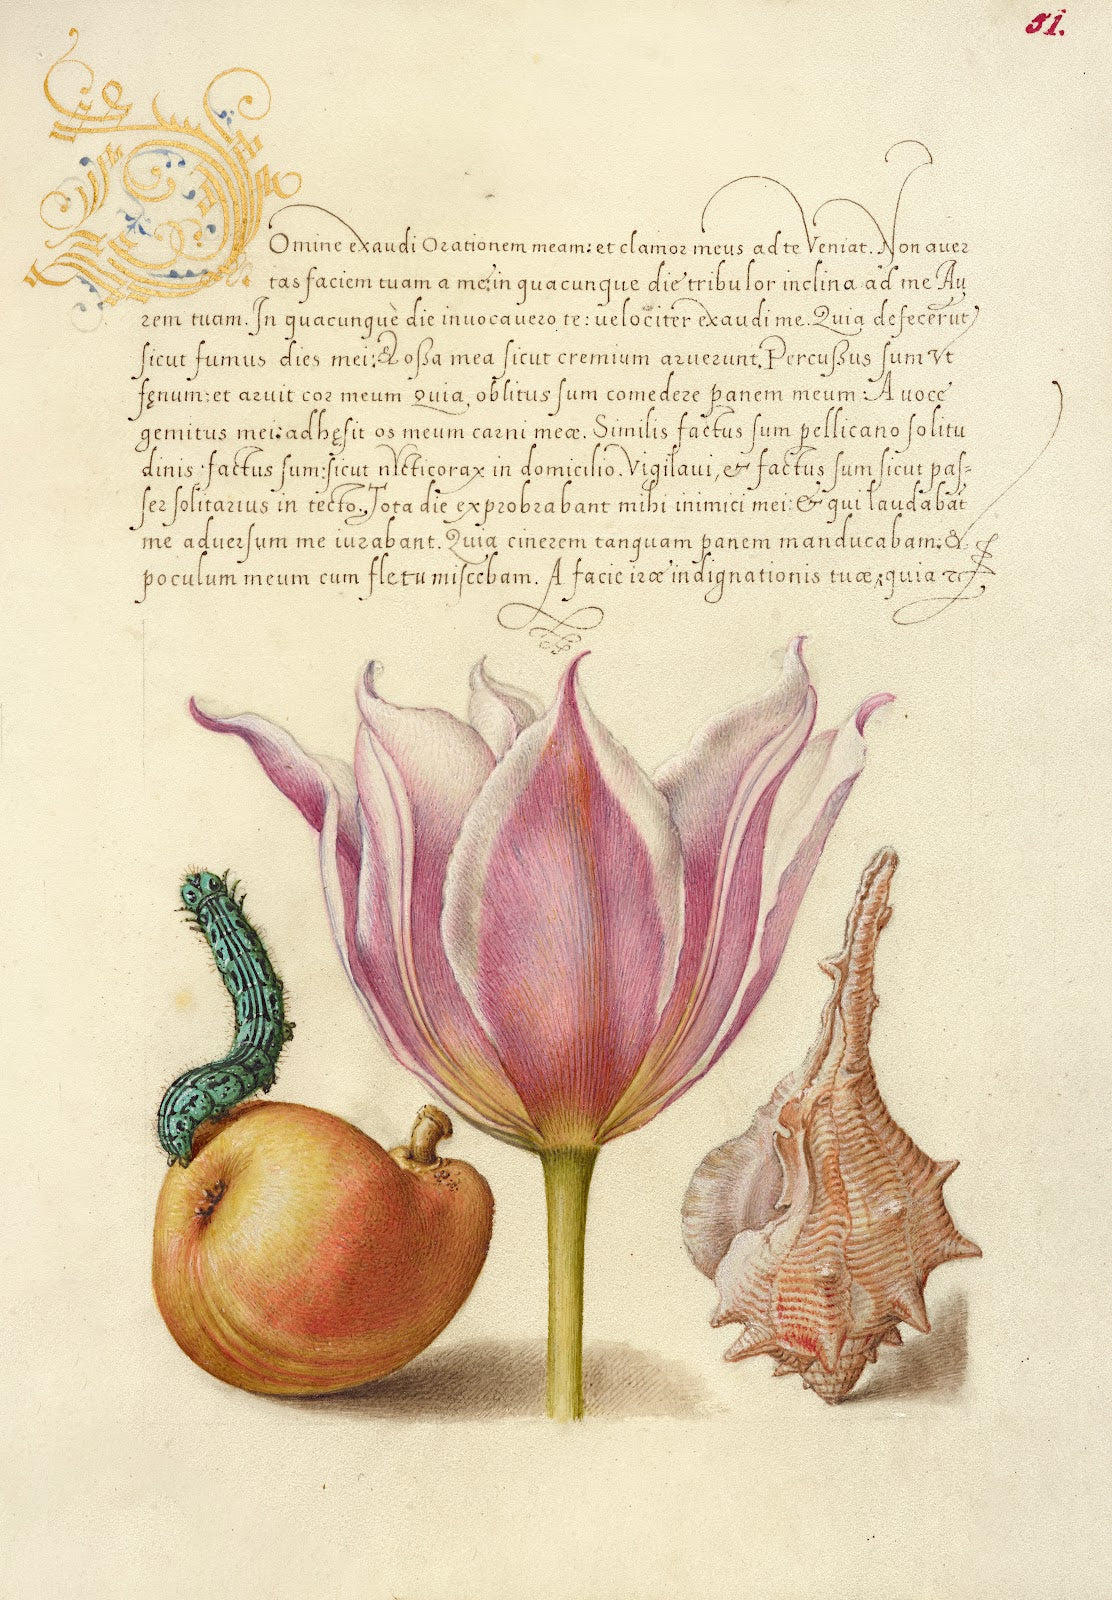 51.
Domine exaudi Orationem meam: et clamor meus ad te Veniat. Non auer
tas faciem tuam a me: in quacunque die tribulor inclina ad me Au
rem tuam. In quacunque die inuocauero te: uelociter exaudi me. Quia defecerut
sicut fumus dies mei: & oßa mea sicut cremium aruerunt. Percußus sum Vt
fęnum: et aruit cor meum Quia oblitus sum comedere panem meum A uoce
gemitus mei: adhęsit os meum carni meæ. Similis factus sum pellicano solitu
dinis factus sum: sicut nicticorax in domicilio. Vigilaui, & factus sum sicut pas=
ser solitarius in tecto. Tota die exprobrabant mihi inimici mei: & qui laudabāt
me aduersum me iurabant. Quia cinerem tanquam panem manducabam: &
poculum meum cum fletu miscebam. A facie iræ indignationis tuæ, quia